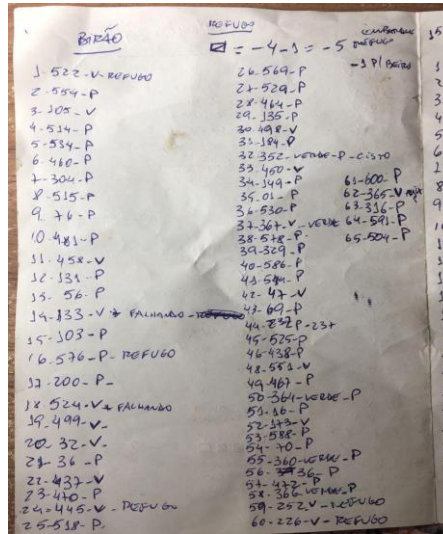 BIRÃO
1-522-V-REFUGO
2-554-P
3-105-V
4-514-P
5-534-P
6-460-P
7-304-P
8-515-P
9-76-P
10-481-P
11-458-V
12-131-P
13-56-P
14-133-V FALHANDO
15-103-P
16-576-P-REFUGO
17-200-P-
18-524-V FALHANDO
19-499-V-
20-32-V-
21-36-P
22-437-V
23-470-P
24=445-V-REFUGO
25-518-P-
REFUGO
= -4-1 = -5
-1 P/
26-569-P
27-529-P
28-464-P
29-135-P
30-498-V
31-184-P
32-352-VERDE-P-CISTO
33-450-V
34-149-P
35-01-P
36-530-P
37-367-V-VERDE
38-578-P-
39-329-P
40-586-P
41-594-P
42-47-V
43-69-P
44-232P-237
45-525-P
46-438-P
48-551-V
49-467-P
50-364-VERDE-P
51-16-P
52-173-V
53-588-P
54-70-P
55-360-VERDE-P
56-36-P
57-472-P
58-366-VERDE-P
59-252-V-REFUGO
60-226-V-REFUGO
61-600-P
62-365-V
63-316-P
64-591-P
65-504-P
15